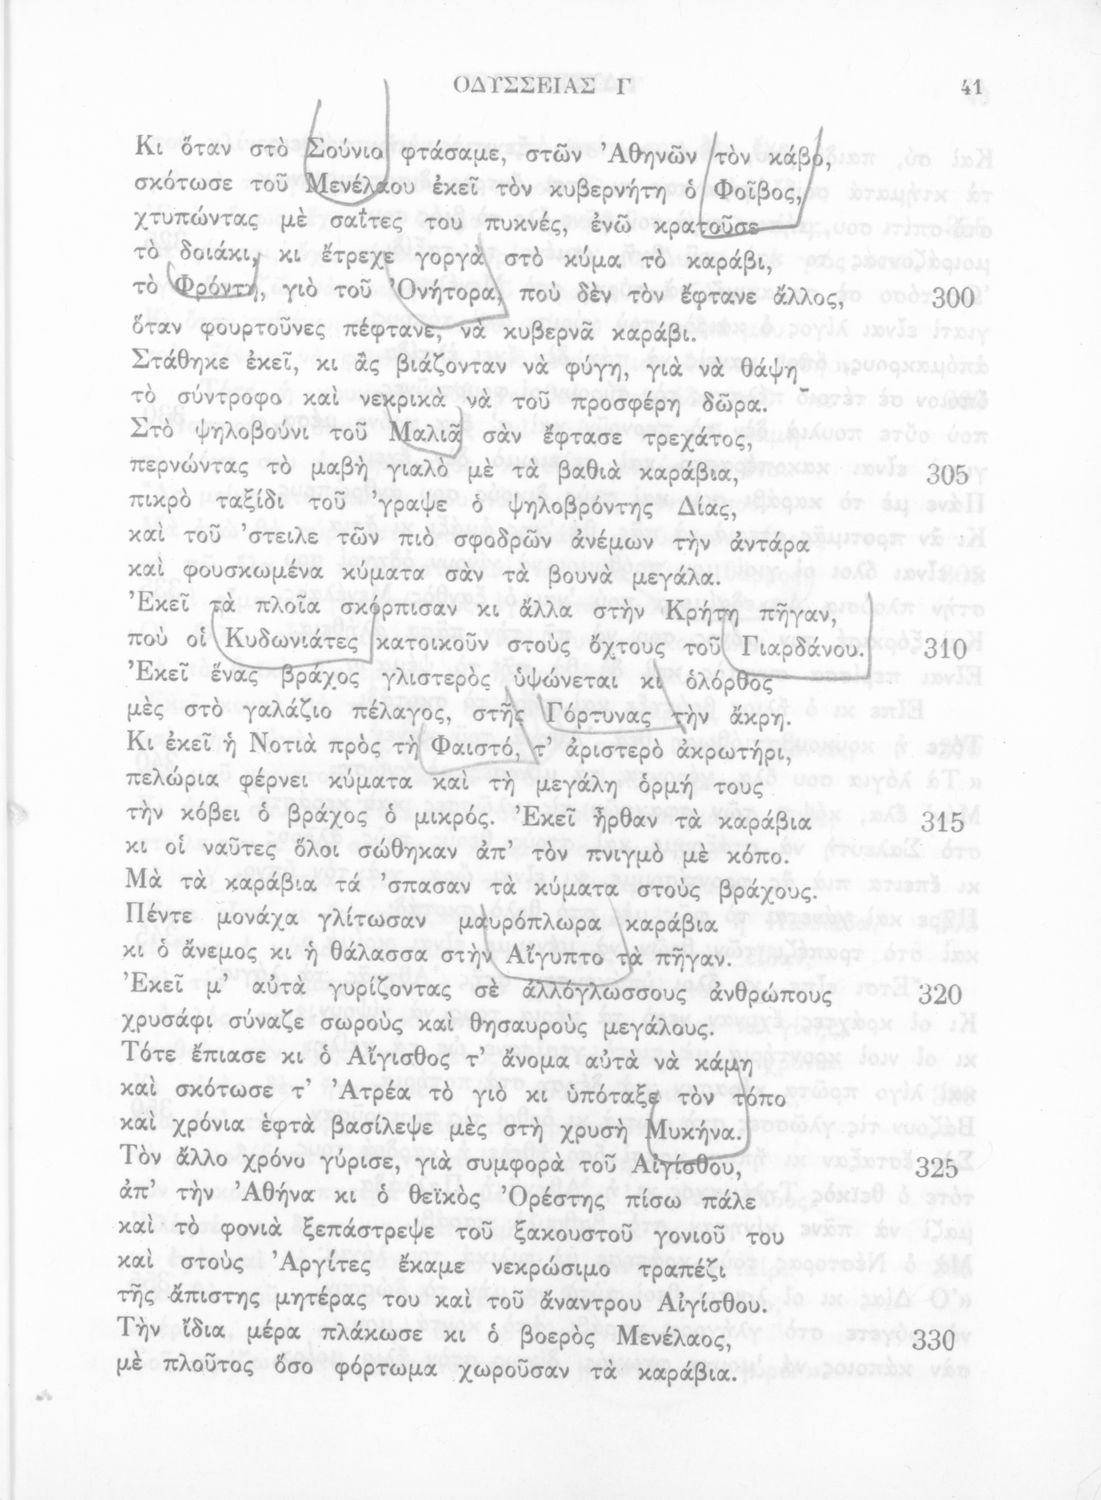 ΟΔΥΣΣΕΙΑΣ Γ 41
Κι ὅταν στὸ Σούνιο φτάσαμε, στῶν Ἀθηνῶν τὸν κάβο,
σκότωσε τοῦ Μενέλαου ἐκεῖ τὸν κυβερνήτη ὁ Φοῖβος,
χτυπώντας μὲ σαΐτες του πυκνές, ἐνῶ κρατοῦσε
τὸ δοιάκι, κι ἔτρεχε γοργὰ στὸ κύμα τὸ καράβι,
τὸ Φρόντη, γιὸ τοῦ Ὀνήτορα, ποὺ δὲν τὸν ἔφτανε ἄλλος, 300
ὅταν φουρτοῦνες πέφτανε, νὰ κυβερνᾶ καράβι.
Στάθηκε ἐκεῖ, κι ἂς βιάζονταν νὰ φύγη, γιὰ νὰ θάψη
τὸ σύντροφο καὶ νεκρικὰ νὰ τοῦ προσφέρη δῶρα.
Στὸ ψηλοβούνι τοῦ Μαλιᾶ σὰν ἔφτασε τρεχάτος,
περνώντας τὸ μαβὴ γιαλὸ μὲ τὰ βαθιὰ καράβια, 305
πικρὸ ταξίδι τοῦ ’γραψε ὁ ψηλοβρόντης Δίας,
καὶ τοῦ ’στειλε τῶν πιὸ σφοδρῶν ἀνέμων τὴν ἀντάρα
καὶ φουσκωμένα κύματα σὰν τὰ βουνὰ μεγάλα.
Ἐκεῖ τὰ πλοῖα σκόρπισαν κι ἄλλα στὴν Κρήτη πῆγαν,
ποὺ οἱ Κυδωνιάτες κατοικοῦν στοὺς ὄχτους τοῦ Γιαρδάνου. 310
Ἐκεῖ ἕνας βράχος γλιστερὸς ὑψώνεται κι ὁλόρθος
μὲς στὸ γαλάζιο πέλαγος, στῆς Γόρτυνας τὴν ἄκρη.
Κι ἐκεῖ ἡ Νοτιὰ πρὸς τὴ Φαιστό, τ’ ἀριστερὸ ἀκρωτήρι,
πελώρια φέρνει κύματα καὶ τὴ μεγάλη ὁρμή τους
τὴν κόβει ὁ βράχος ὁ μικρός. Ἐκεῖ ἦρθαν τὰ καράβια 315
κι οἱ ναῦτες ὅλοι σώθηκαν ἀπ’ τὸν πνιγμὸ μὲ κόπο.
Μὰ τὰ καράβια τά ’σπασαν τὰ κύματα στοὺς βράχους.
Πέντε μονάχα γλίτωσαν μαυρόπλωρα καράβια
κι ὁ ἄνεμος κι ἡ θάλασσα στὴν Αἴγυπτο τὰ πῆγαν.
Ἐκεῖ μ’ αὐτὰ γυρίζοντας σὲ ἀλλόγλωσσους ἀνθρώπους 320
χρυσάφι σύναζε σωροὺς καὶ θησαυροὺς μεγάλους.
Τότε ἔπιασε κι ὁ Αἴγισθος τ’ ἄνομα αὐτὰ νὰ κάμη
καὶ σκότωσε τ’ Ἀτρέα τὸ γιὸ κι ὑπόταξε τὸν τόπο
καὶ χρόνια ἑφτὰ βασίλεψε μὲς στὴ χρυσὴ Μυκήνα.
Τὸν ἄλλο χρόνο γύρισε, γιὰ συμφορὰ τοῦ Αἰγίσθου, 325
ἀπ’ τὴν Ἀθήνα κι ὁ θεϊκὸς Ὀρέστης πίσω πάλε
καὶ τὸ φονιὰ ξεπάστρεψε τοῦ ξακουστοῦ γονιοῦ του
καὶ στοὺς Ἀργίτες ἔκαμε νεκρώσιμο τραπέζι
τῆς ἄπιστης μητέρας του καὶ τοῦ ἄναντρου Αἰγίσθου.
Τὴν ἴδια μέρα πλάκωσε κι ὁ βοερὸς Μενέλαος, 330
μὲ πλοῦτος ὅσο φόρτωμα χωροῦσαν τὰ καράβια.